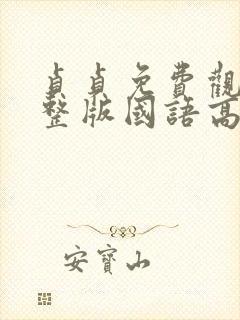 貞貞免費觀
整版國語高
安寶山